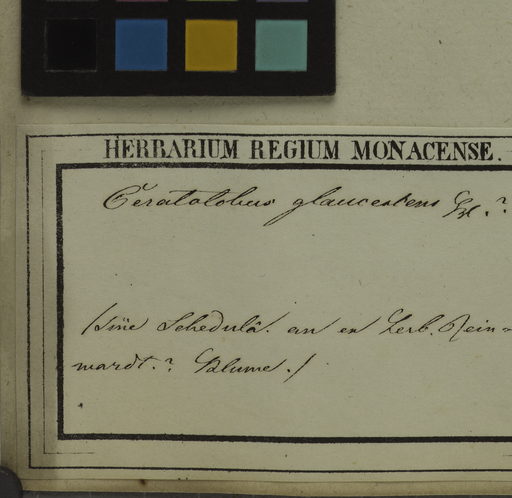 HERBARIUM REGIUM MONACENSE.
Ceratolobus glaucescens Bl.?
(sine Schedulâ. an ex herb. Rein=
wardt.? Blume.)